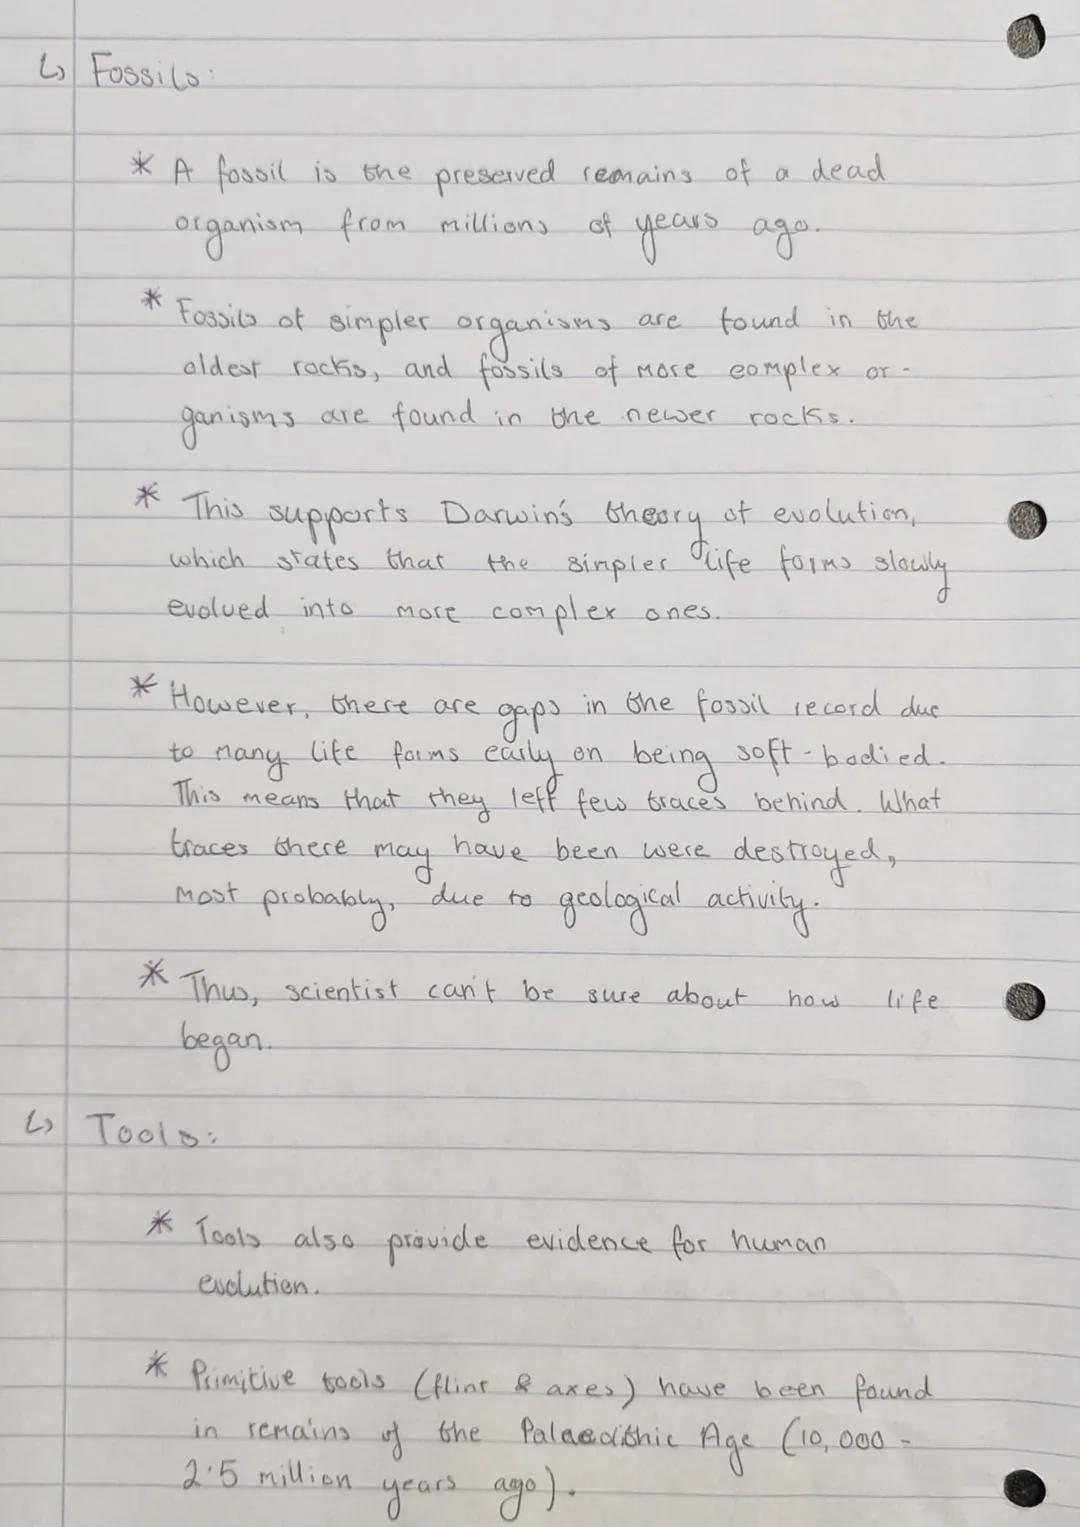 ↳ Fossils:
* A fossil is the preserved remains of a dead
organism from millions of years ago.
* Fossils of simpler organisms are found in the
oldest rocks, and fossils of more complex or-
ganisms are found in the newer rocks.
* This supports Darwin's theory of evolution,
which states that the simpler life forms slowly
evolved into more complex ones.
* However, there are gaps in the fossil record due
to many life forms early on being soft-bodied.
This means that they left few traces behind. What
traces there may have been were destroyed,
most probably, due to geological activity.
* Thus, scientist can't be sure about how life
began.
↳ Tools:
* Tools also provide evidence for human
evolution.
* Primitive tools (flint & axes) have been found
in remains of the Palaeolithic Age (10,000 -
2.5 million years ago).